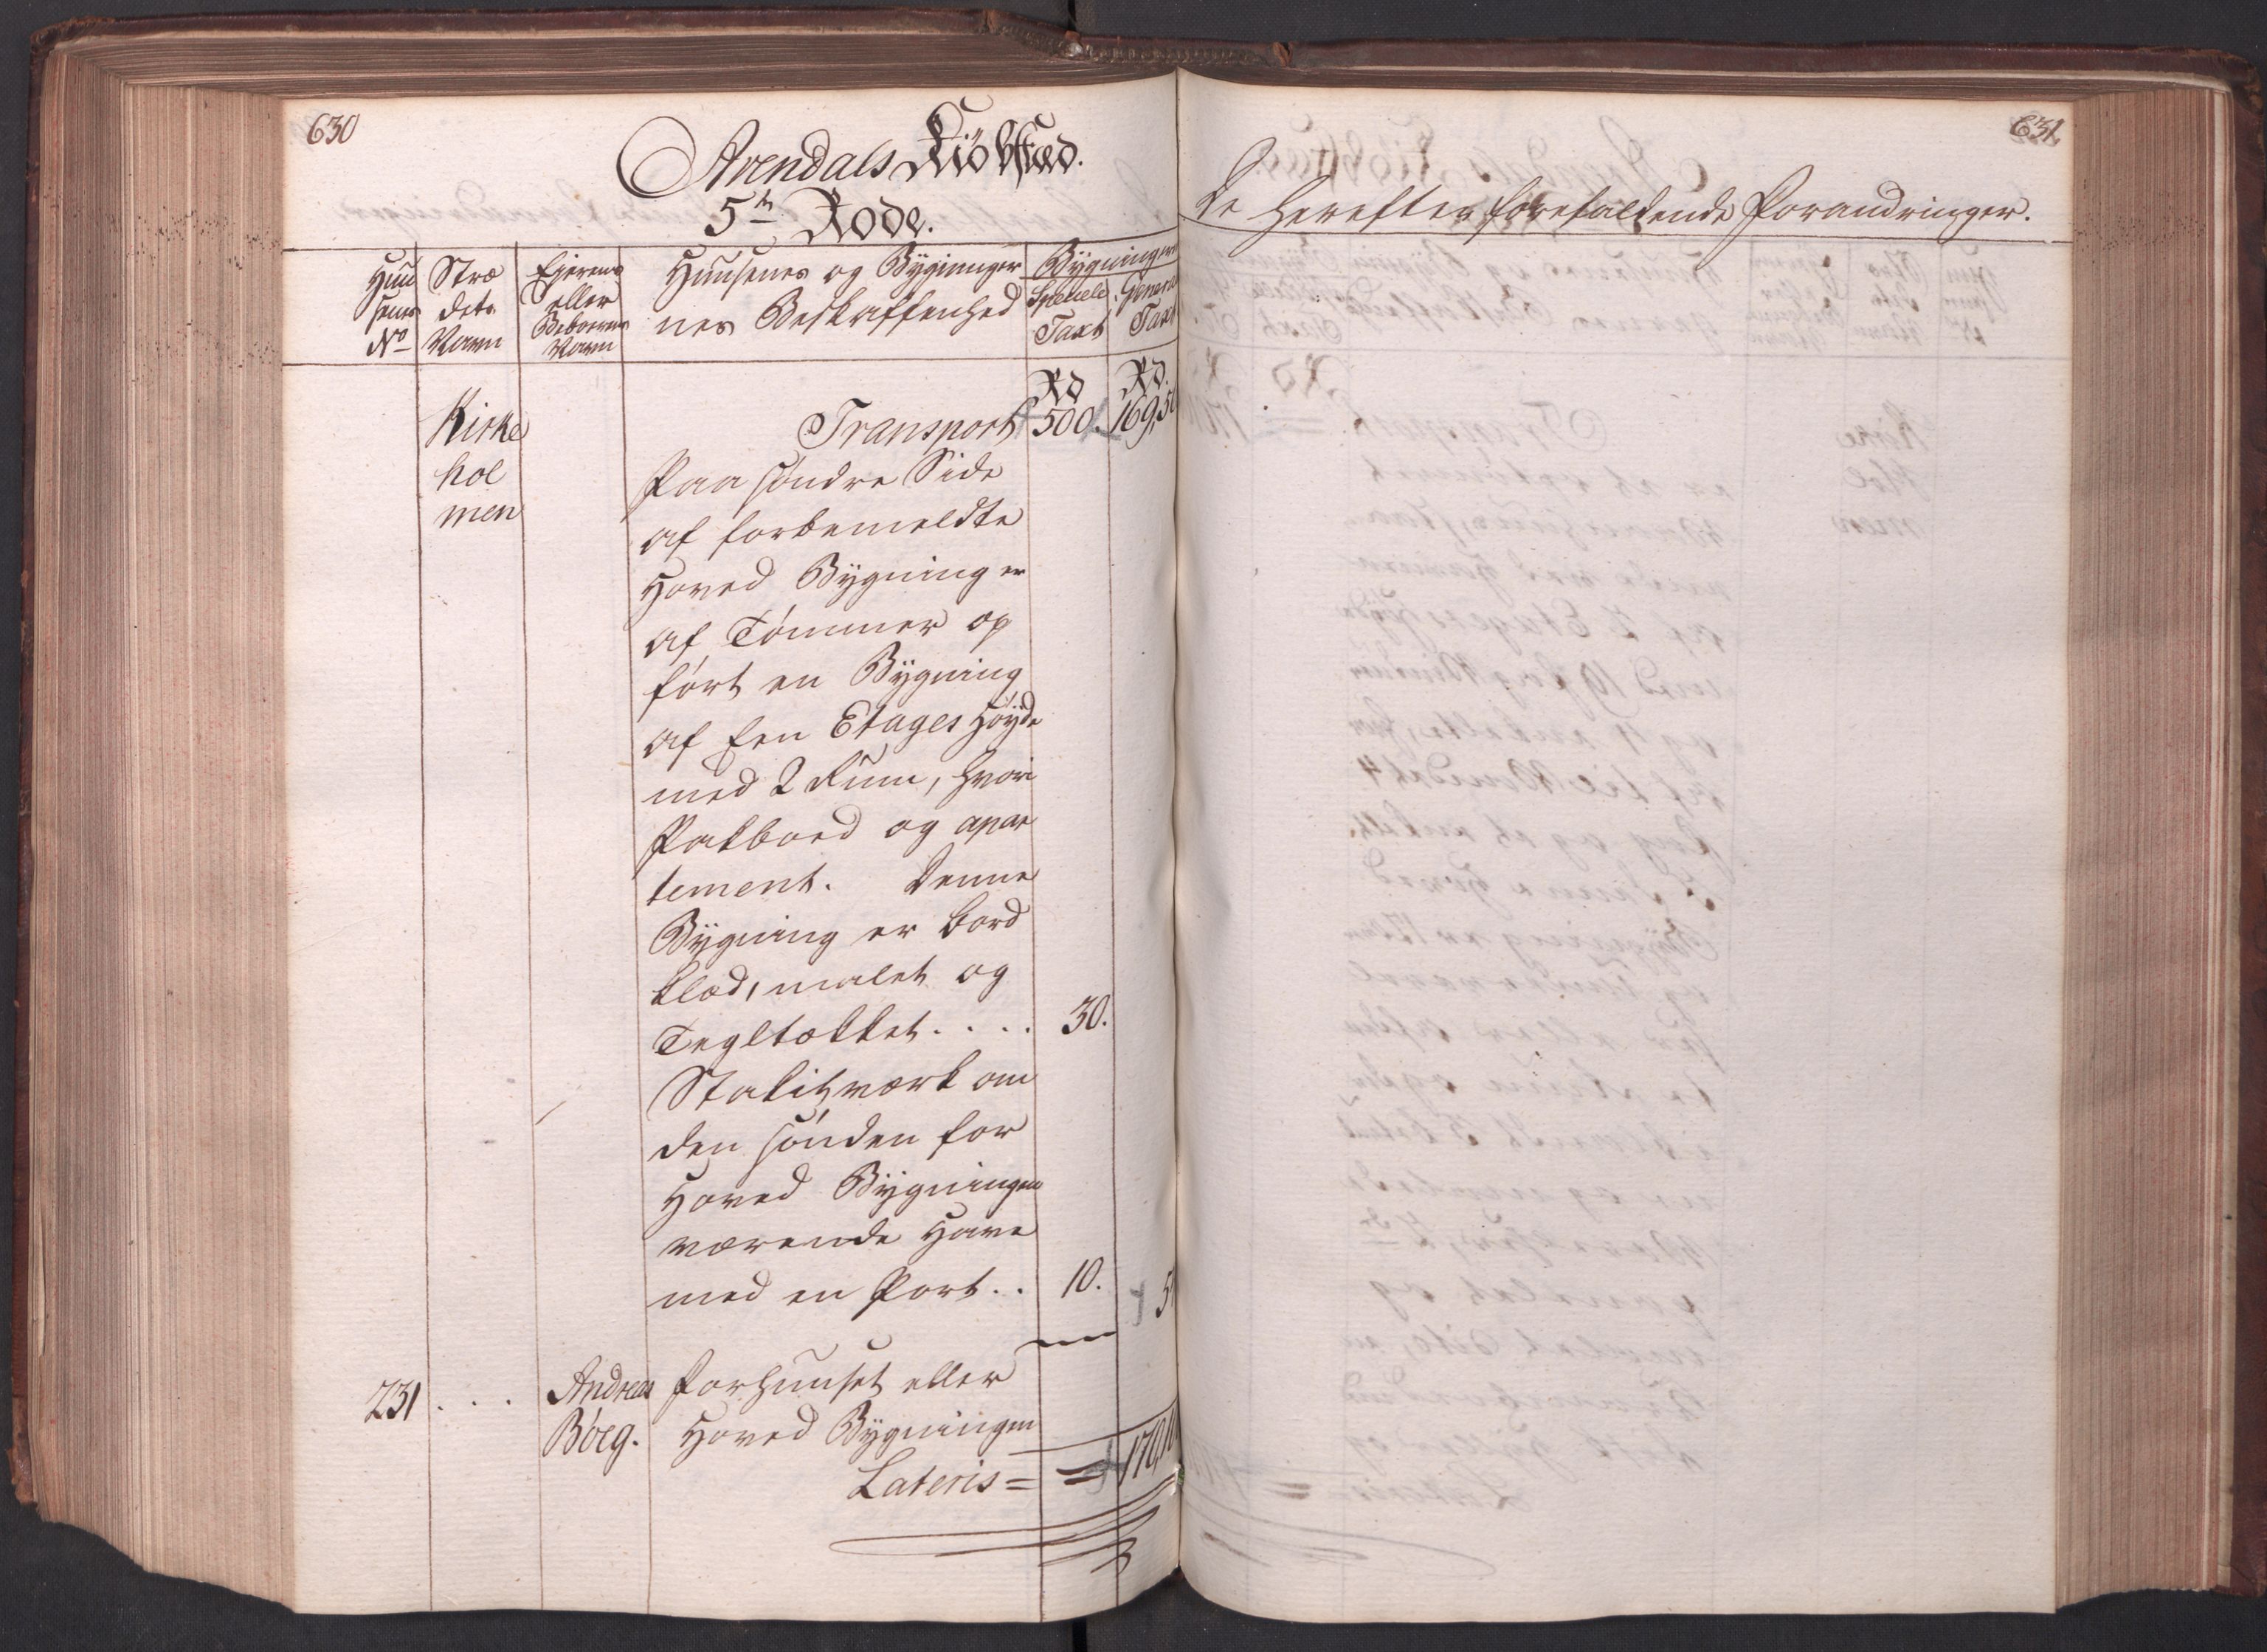 630
Arendals Kiöbstæd.
5te Rode.
Huu
senes
No
Stræ
dets
Navn
Ejerens
eller
Beboerens
Navn
Huusenes og Bygninger
nes Beskaffenhed
Bygningers
Speciele
Taxt
General
Taxt
Rd
Rd.
Kirke
hol
men
Transport 500. 169,5
Paa søndre Side
af forbemeldte
Hoved Bygning er
af Tømmer op
ført en Bygning
af Een Etages Høyde
med 2 Rum, hvori
Pakboed og apar
tement. Denne
Bygning er bord
klæd, malet og
Tegltækket. . . . 30.
Stakitværk om
den sønden for
Hoved Bygningen
værende Have
med en Port. . 10. 5
231 . . . Andreas Forhuuset eller
Bøeg. Hoved Bygningen
Lateris = = 170,10
631
De Herefter forefaldende Forandringer.